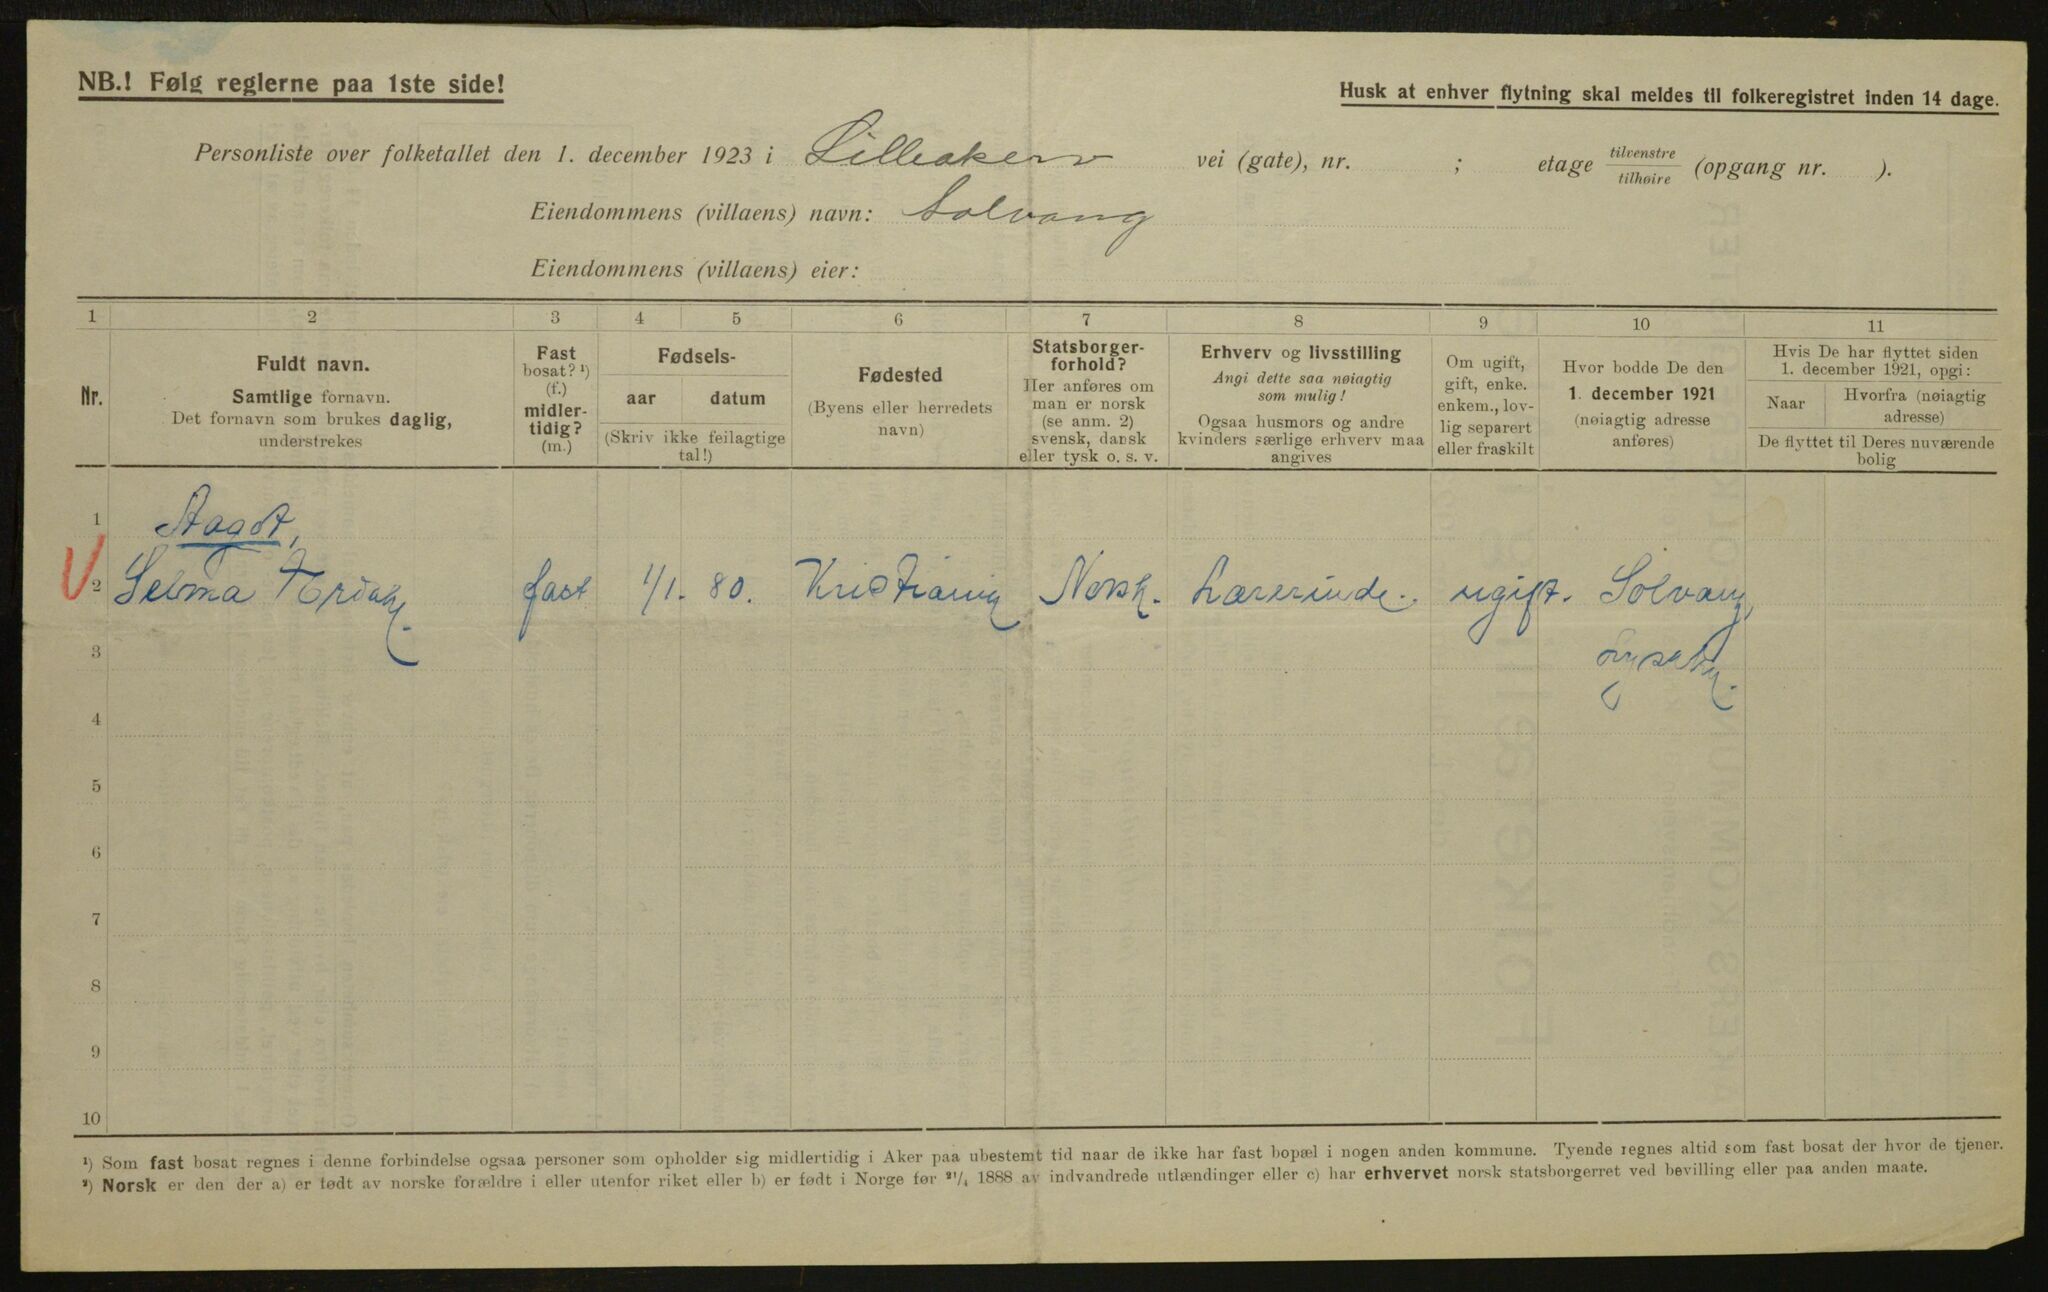 NB.! Følg reglerne paa 1ste side!
Husk at enhver flytning skal meldes til folkeregistret inden 14 dage.
Personliste over folketallet den 1. december 1923 i Lilleakerv vei (gate), nr. ; etage tilvenstre / tilhøire (opgang nr. ).
Eiendommens (villaens) navn: Solvang
Eiendommens (villaens) eier:
1 2 3 4 5 6 7 8 9 10 11
Nr.
Fuldt navn.
Samtlige fornavn.
Det fornavn som brukes daglig,
understrekes
Fast
bosat? ¹)
(f.)
midler-
tidig?
(m.)
Fødsels-
aar datum
(Skriv ikke feilagtige
tal!)
Fødested
(Byens eller herredets
navn)
Statsborger-
forhold?
Her anføres om
man er norsk
(se anm. 2)
svensk, dansk
eller tysk o. s. v.
Erhverv og livsstilling
Angi dette saa nøiagtig
som mulig!
Ogsaa husmors og andre
kvinders særlige erhverv maa
angives
Om ugift,
gift, enke.
enkem., lov-
lig separert
eller fraskilt
Hvor bodde De den
1. december 1921
(nøiagtig adresse
anføres)
Hvis De har flyttet siden
1. december 1921, opgi:
Naar
Hvorfra (nøiagtig
adresse)
De flyttet til Deres nuværende
bolig
1 Aagot,
2 Selma fast 1/1. 80. Kristiania Norsk. Lærerinde. ugift. Solvang,
3
4
5
6
7
8
9
10
¹) Som fast bosat regnes i denne forbindelse ogsaa personer som opholder sig midlertidig i Aker paa ubestemt tid naar de ikke har fast bopæl i nogen anden kommune. Tyende regnes altid som fast bosat der hvor de tjener.
²) Norsk er den der a) er født av norske forældre i eller utenfor riket eller b) er født i Norge før 21/4 1888 av indvandrede utlændinger eller c) har erhvervet norsk statsborgerret ved bevilling eller paa anden maate.